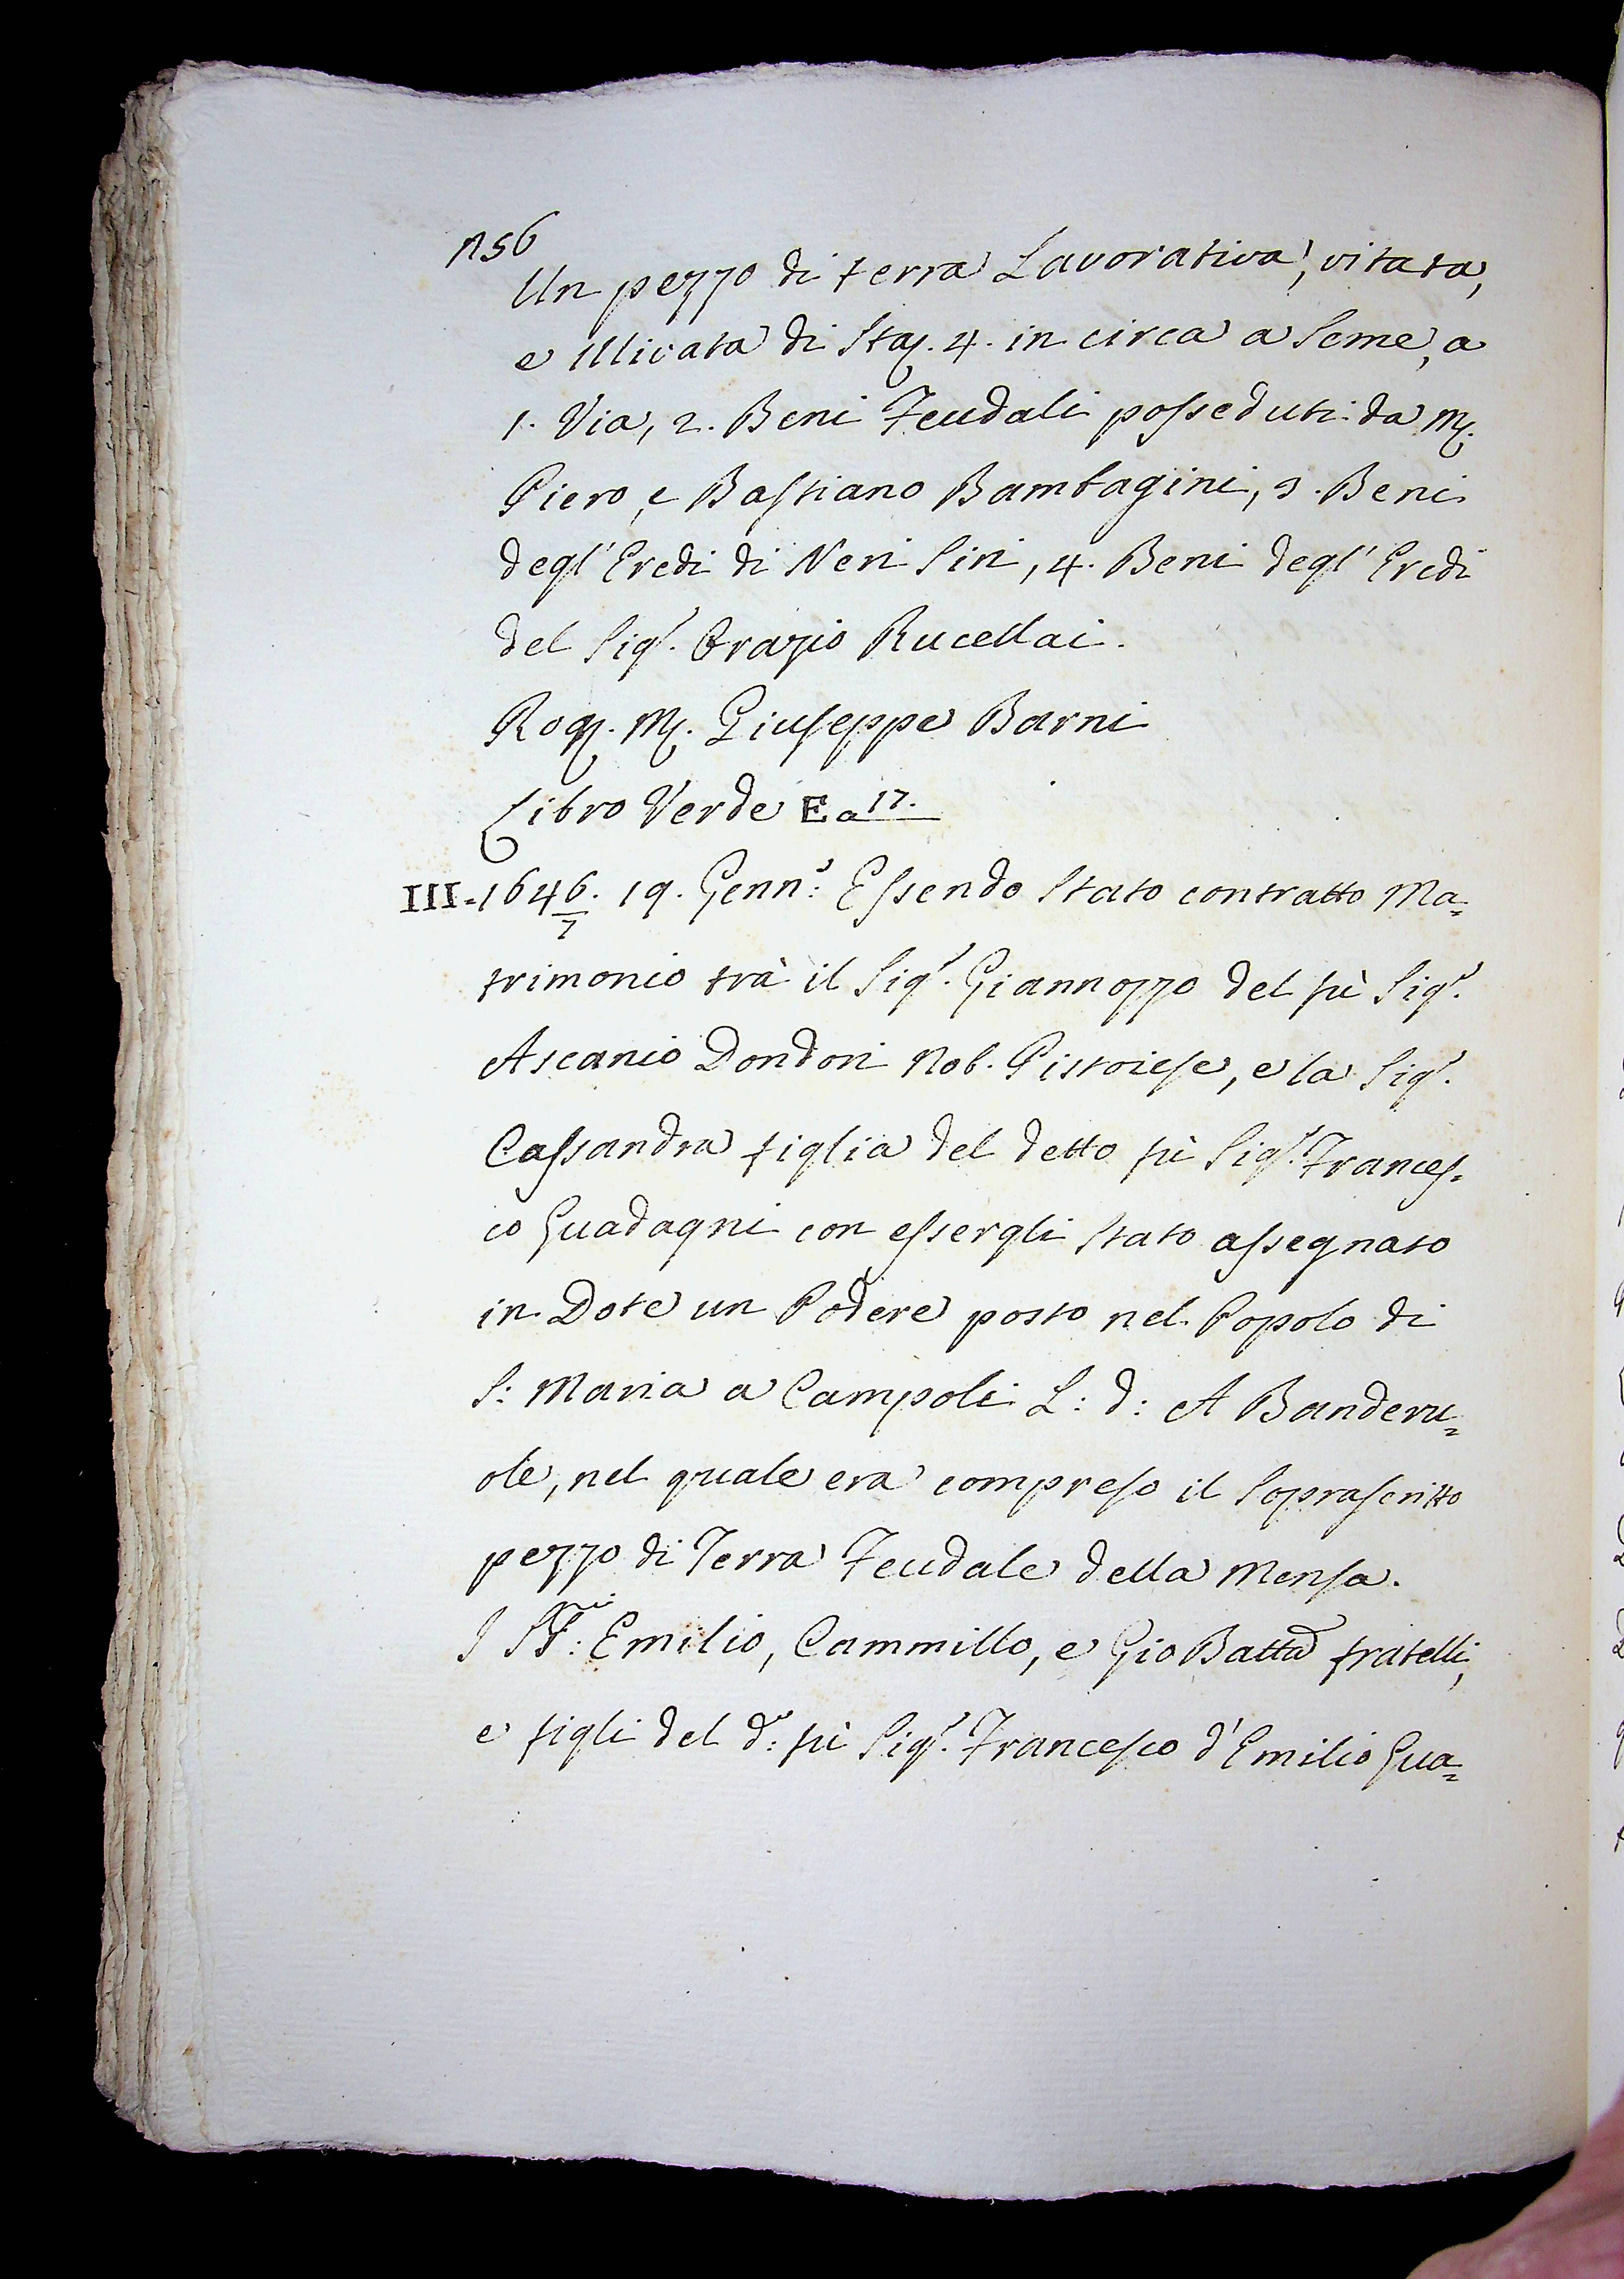 156
Un pezzo di terra Lavorativa, vitata,
e Ulivata di Staj. 4. in circa a Seme, a
1. Via, 2. Beni Feudali posseduti da Mſ.
Piero, e Bastiano Bambagini, 3. Beni
degl' Eredi di Neri Siri, 4. Beni degl' Eredi
del Sigr. Orazio Rucellai.
Rog. Mſ. Giuseppe Barni
Libro Verde E a 17.
III. 1646/7. 19. Genn.o: Essendo Stato contratto Ma=
trimonio trà il Sigr. Giannozzo del fù Sigr.
Ascanio Dondori Nob. Pistoiese, e la Sigr.
Cassandra figlia del detto fù Sigr. Frances=
co Guadagni con essergli Stato assegnato
in Dote un Podere posto nel Popolo di
S: Maria a Campoli L: d: A Banderu=
ole, nel quale era compreso il Soprascritto
pezzo di Terra Feudale della Mensa.
I SS.ri: Emilio, Cammillo, e Gio Batta fratelli,
e figli del d.o: fù Sigr. Francesco d'Emilio Gua=